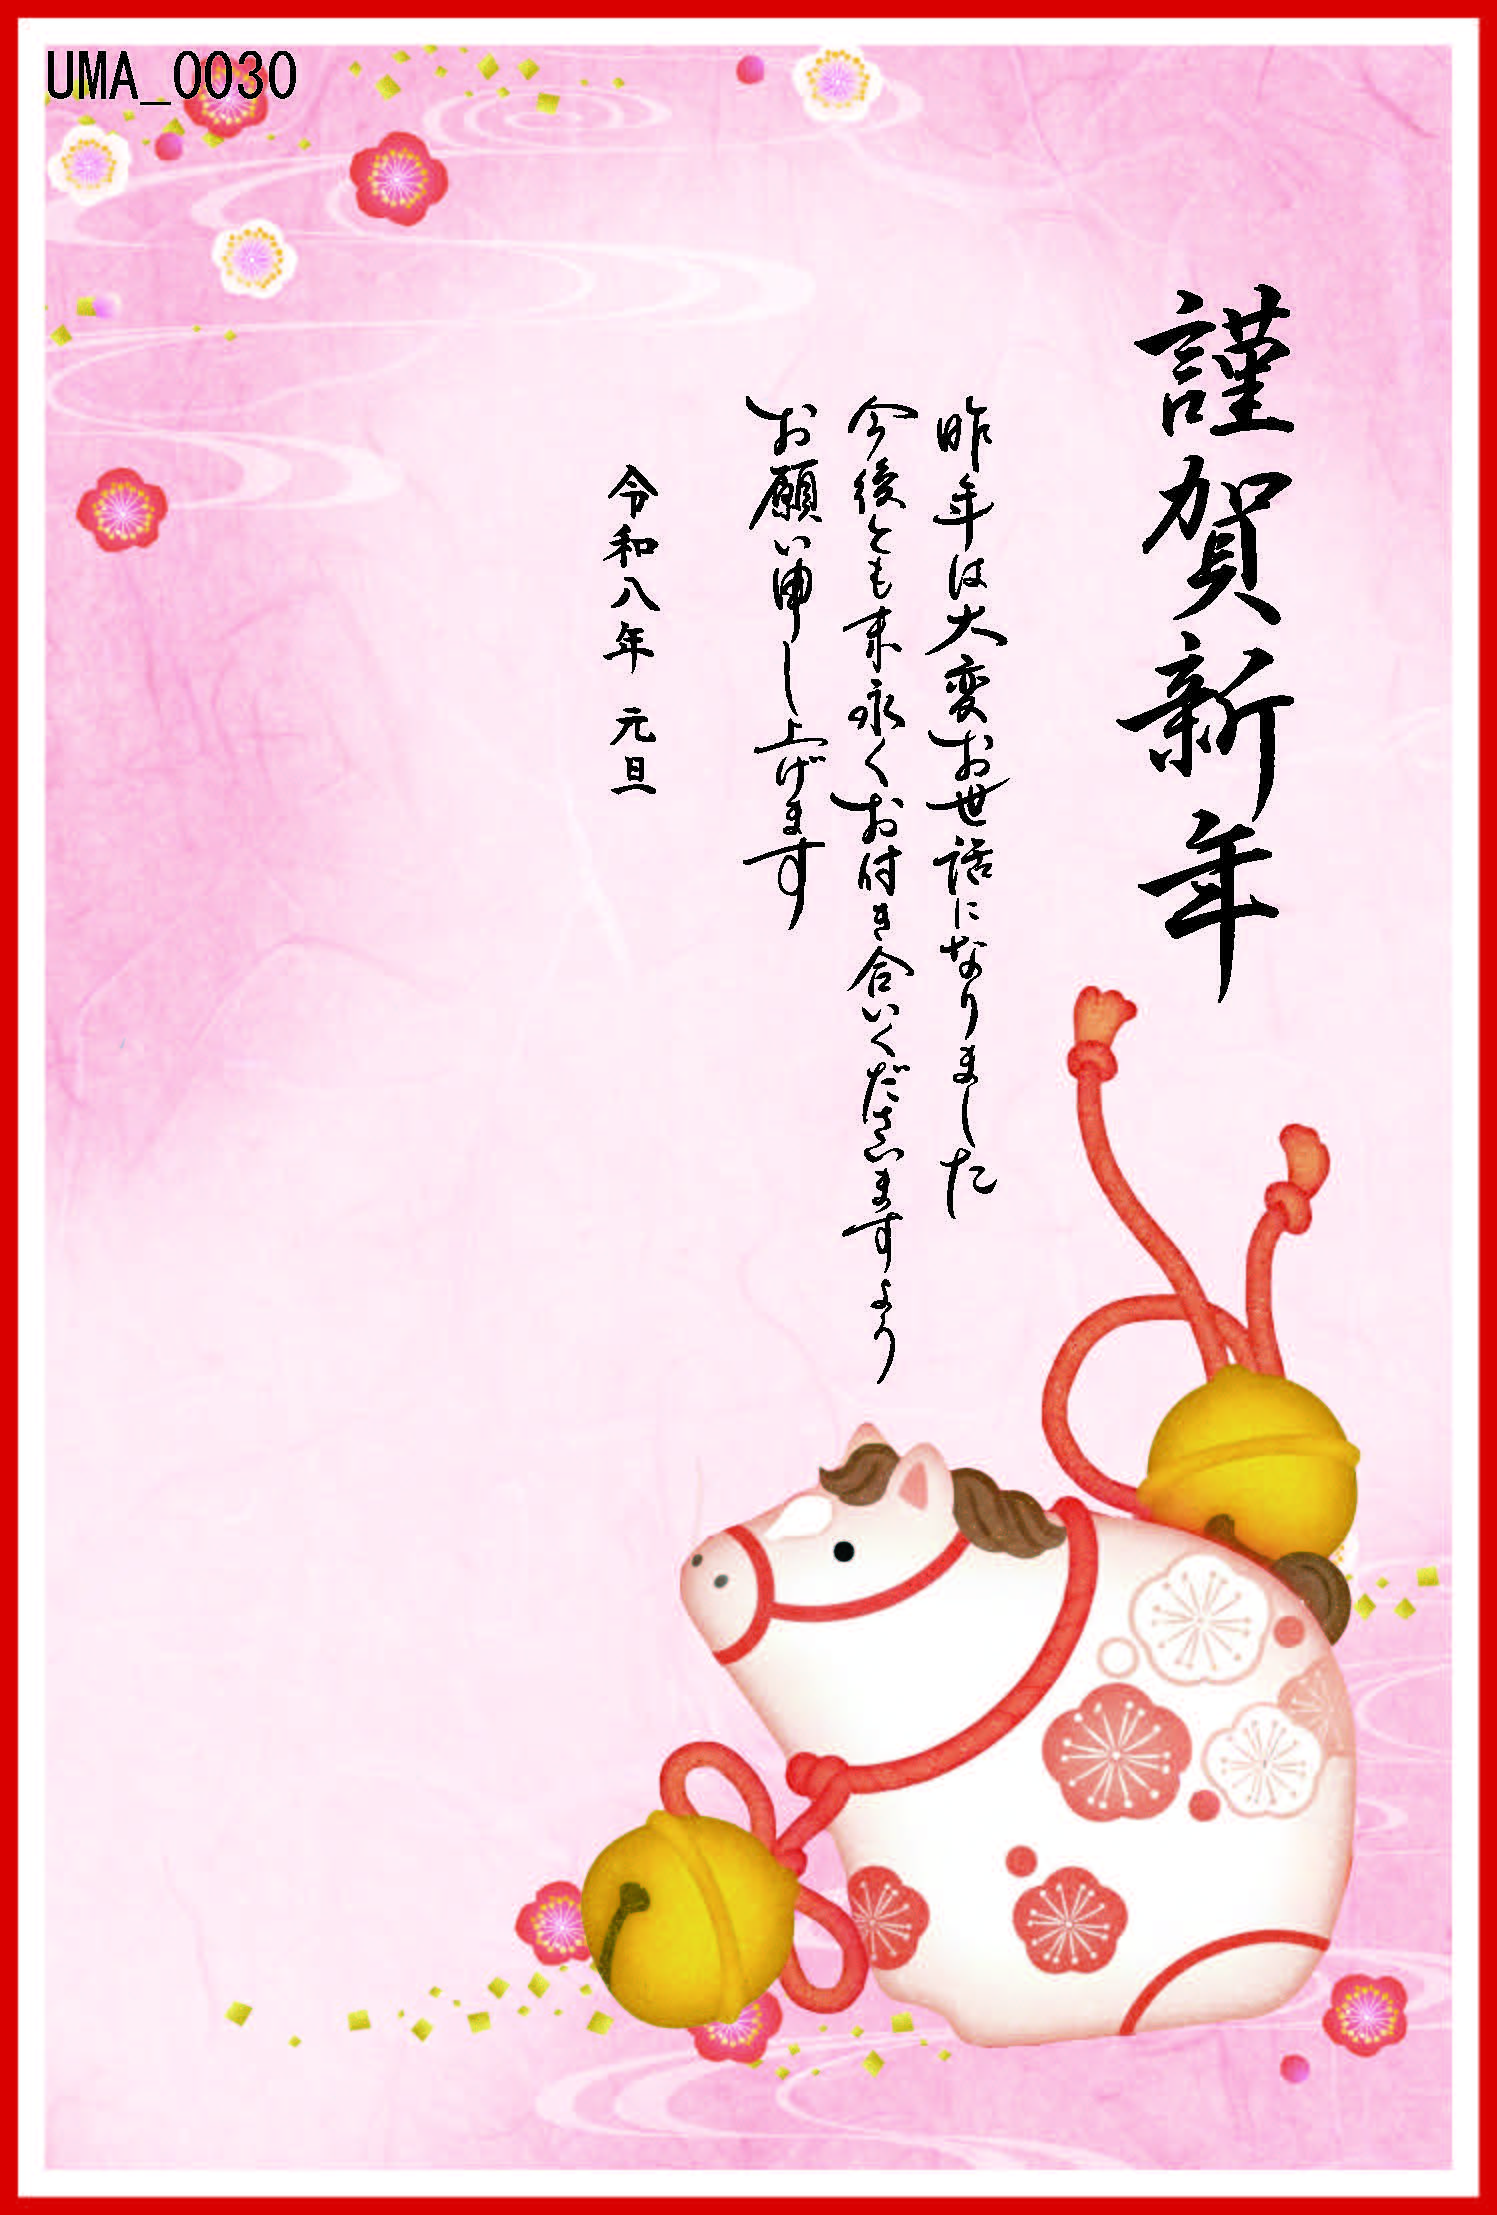 UMA_0030
謹賀新年
昨年は大変お世話になりました
今後とも末永くお付き合いくださいますよう
お願い申し上げます
令和八年 元旦